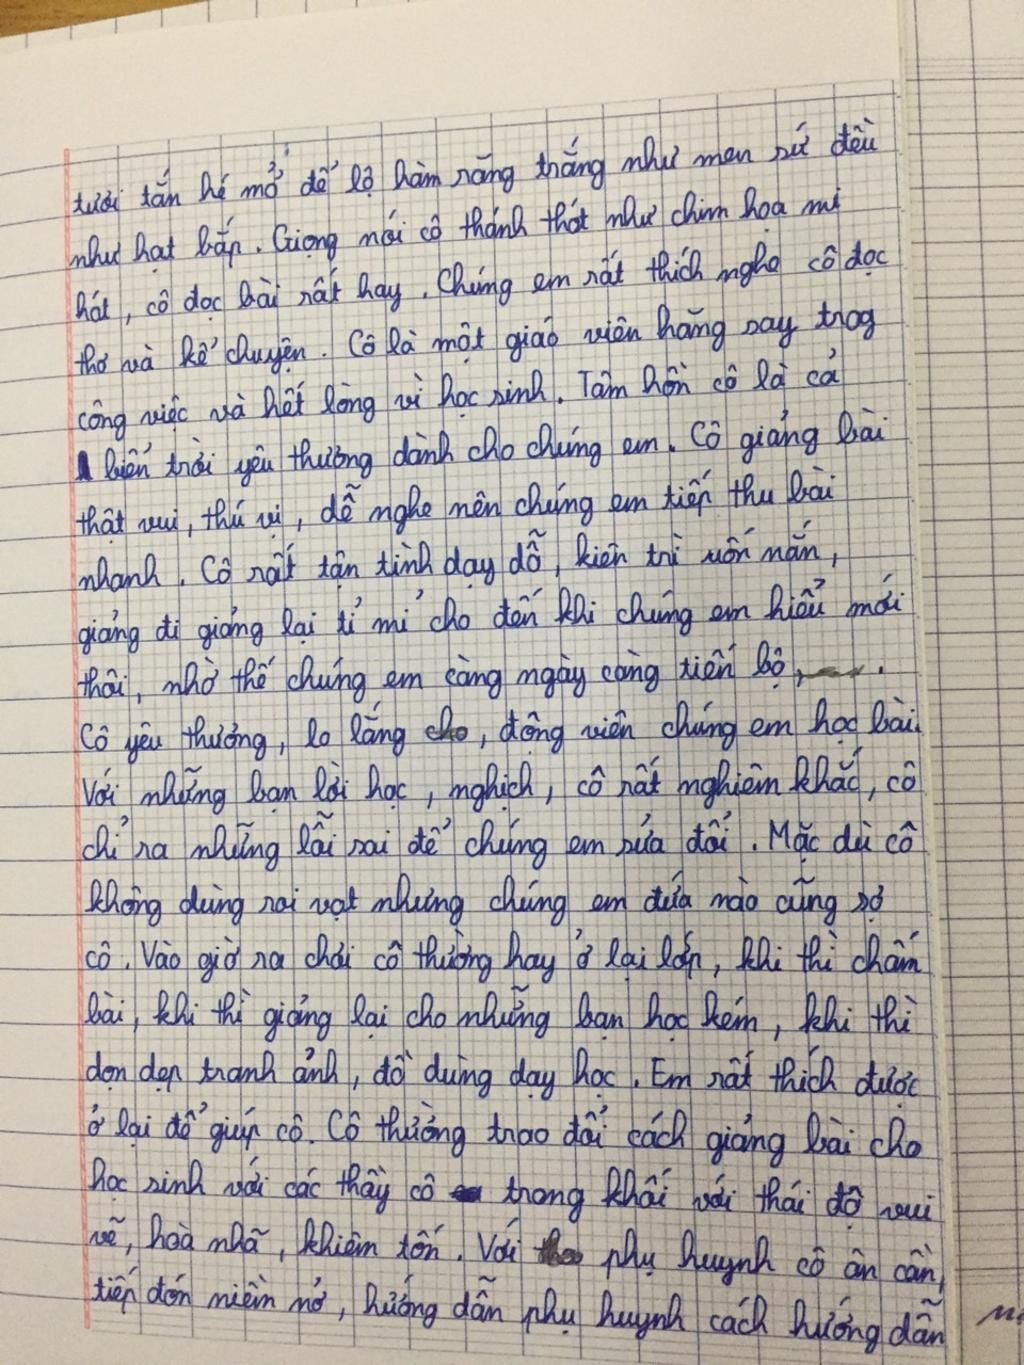 tươi tắn hé mở để lộ hàm răng trắng như men sứ đều
như hạt bắp. Giọng nói cô thánh thót như chim hoạ mi
hót, cô đọc bài rất hay. Chúng em rất thích nghe cô đọc
thơ và kể chuyện. Cô là một giáo viên hăng say trog
công việc và hết lòng vì học sinh. Tâm hồn cô là cả
biển trời yêu thương dành cho chúng em. Cô giảng bài
thật vui, thú vị, dễ nghe nên chúng em tiếp thu bài
nhanh. Cô rất tận tình dạy dỗ, kiên trì uốn nắn,
giảng đi giảng lại tỉ mỉ cho đến khi chúng em hiểu mới
thôi, nhờ thế chúng em càng ngày càng tiến bộ, .
Cô yêu thương, lo lắng cho, động viên chúng em học bài.
Với những bạn lời học, nghịch, cô rất nghiêm khắc, cô
chỉ ra những lỗi sai để chúng em sửa đổi. Mặc dù cô
không dùng roi vọt nhưng chúng em đứa nào cũng sợ
cô. Vào giờ ra chơi cô thường hay ở lại lớp, khi thì chấm
bài, khi thì giảng lại cho những bạn học kém, khi thì
dọn dẹp tranh ảnh, đồ dùng dạy học. Em rất thích được
ở lại để giúp cô. Cô thường trao đổi cách giảng bài cho
học sinh với các thầy cô trong khối với thái độ vui
vẽ, hoà nhã, khiêm tốn. Với phụ huynh cô ân cần,
tiếp đón niềm nở, hướng dẫn phụ huynh cách hướng dẫn